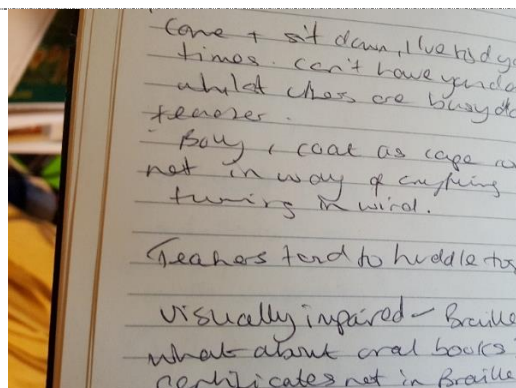 Come + sit down, I've told yo
times. can't have you do
whilst chess are busy do
teacher.
Boy, coat as cape
not in way of anything
turning in wind.
Teachers tend to huddle tog
visually impaired - Braille
what about oral books
certificates not in Braille